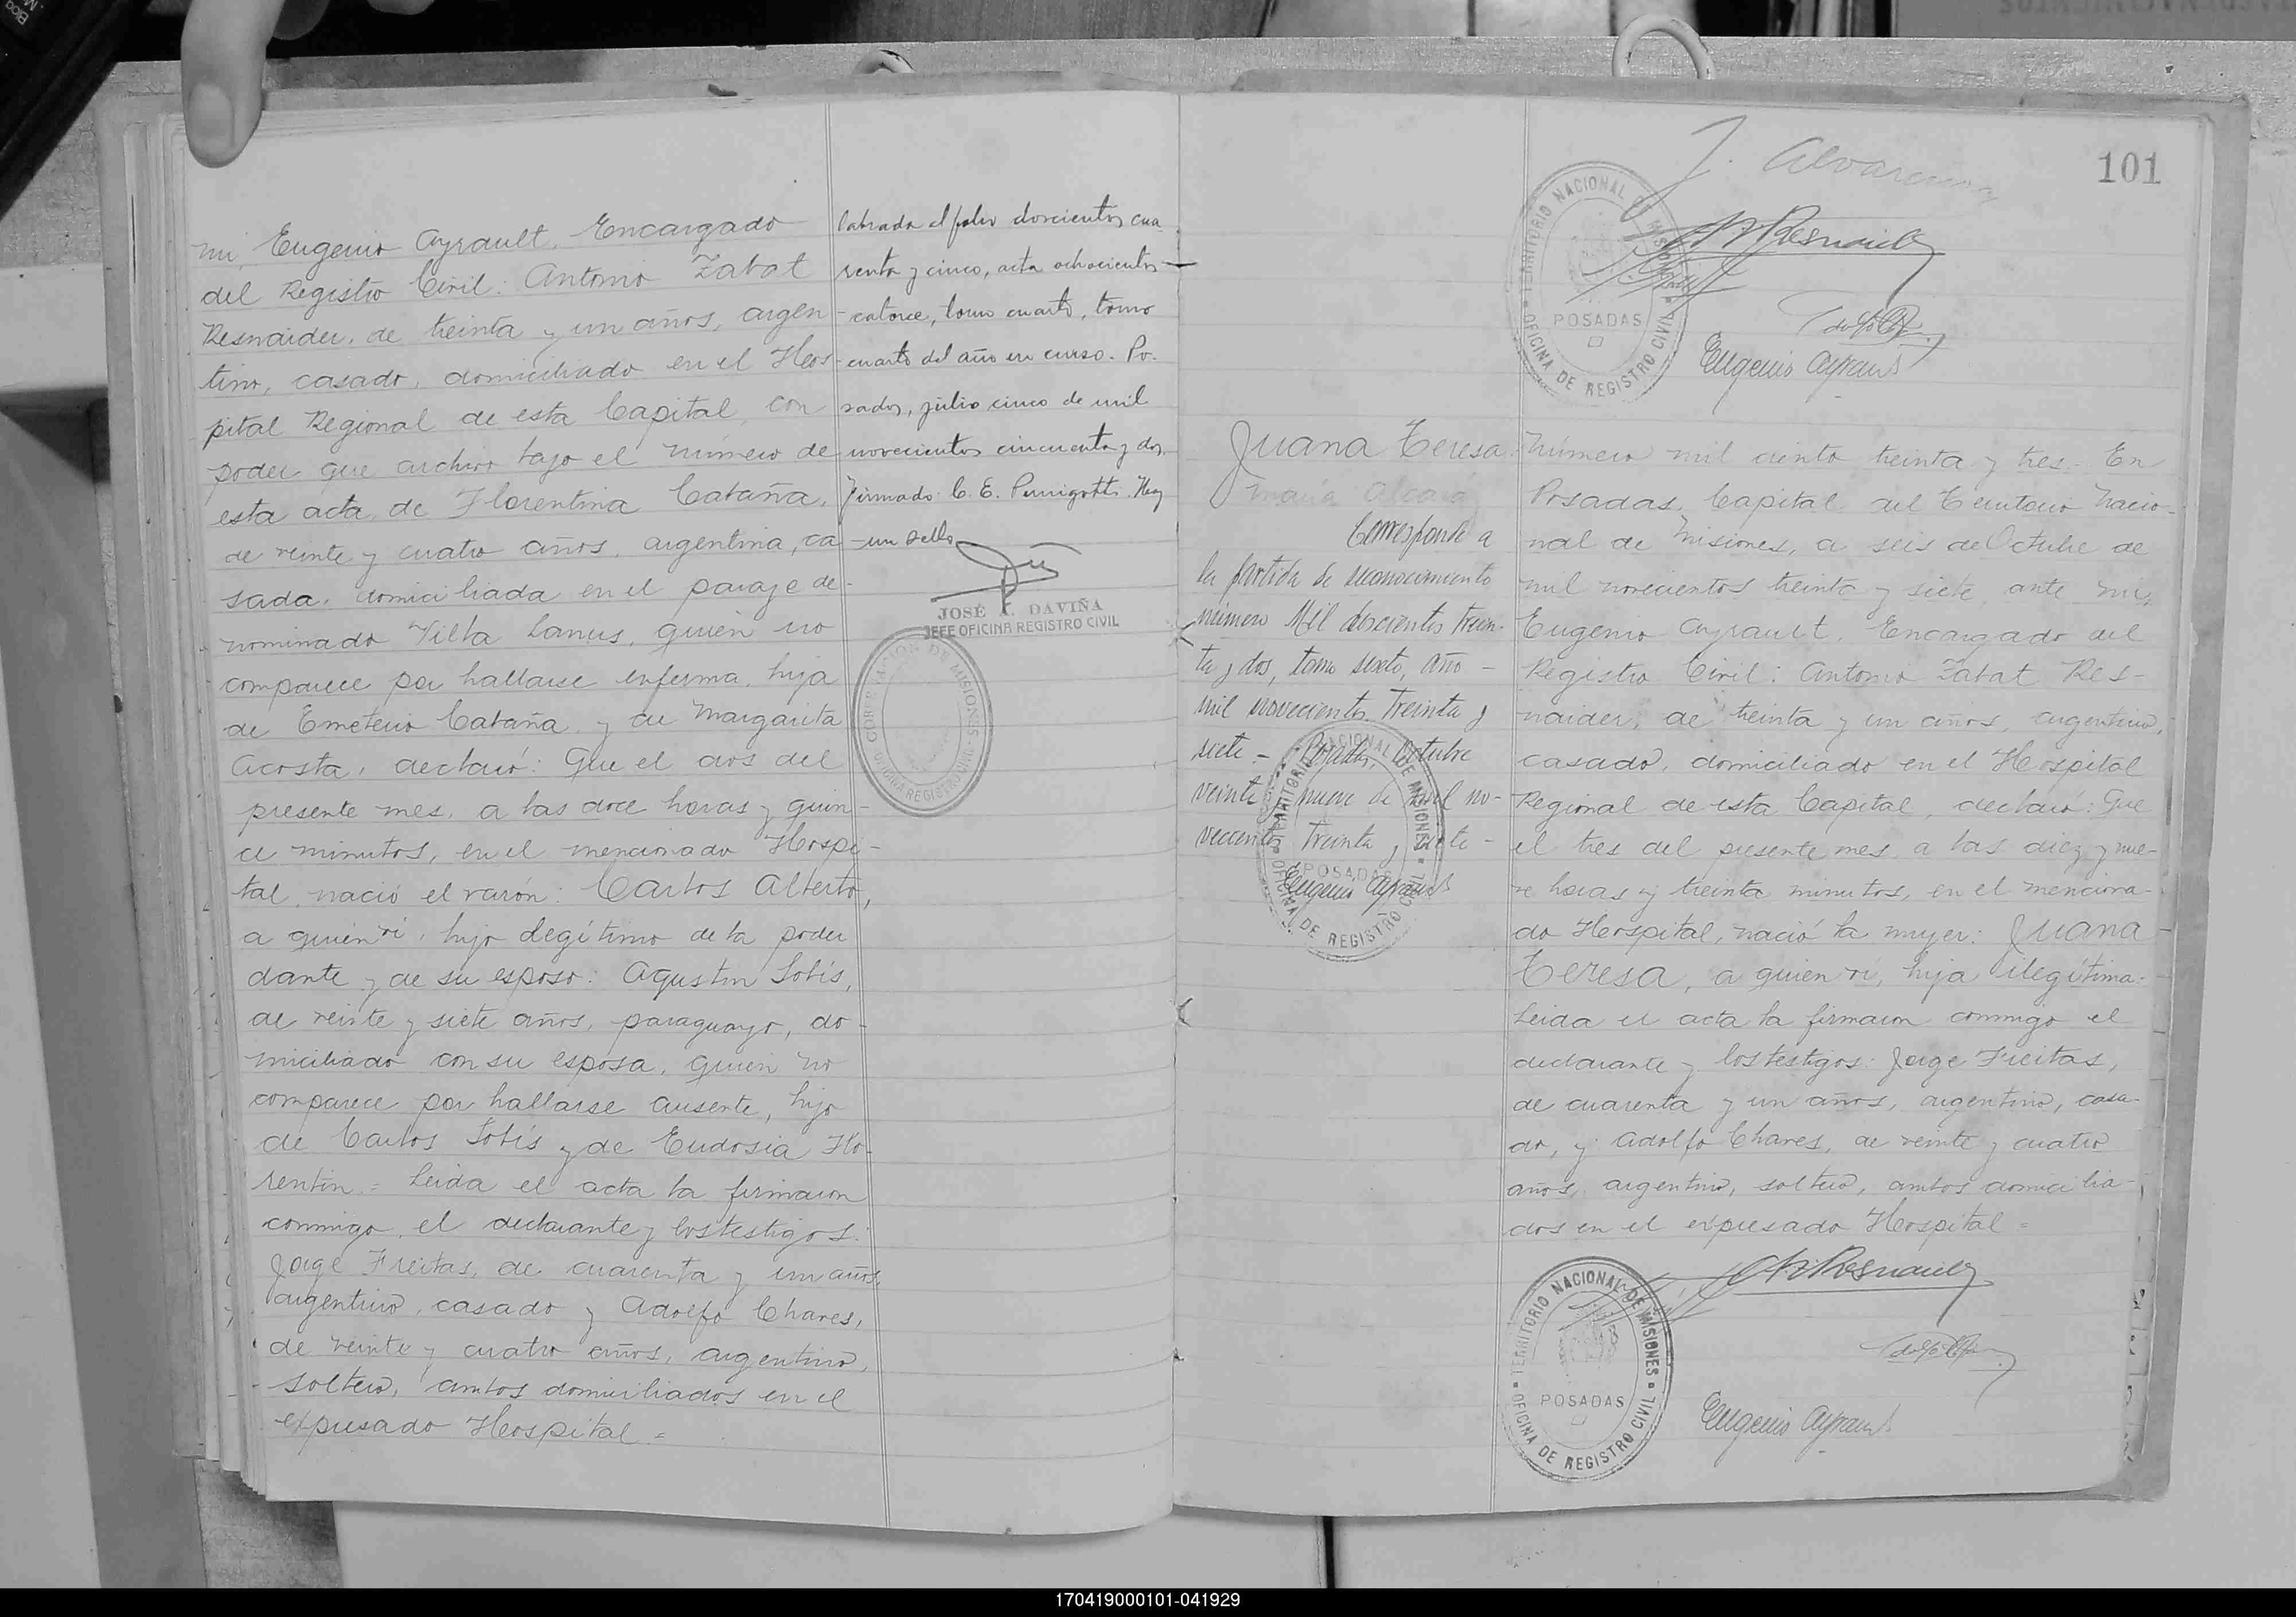 mi, Eugenio Ayrault, Encargado
del Registro Civil: Antonio Zabat
Resnaider, de treinta y un años, argen-
tino, casado, domiciliado en el Hos-
pital Regional de esta Capital, con
poder que archivo bajo el número de
esta acta, de Florentina Cabaña,
de veinte y cuatro años, argentina, ca-
sada, domiciliada en el paraje de-
nominado Villa Lanus, quien no
comparece por hallarse enferma, hija
de Emeterio Cabaña y de Margarita
Acosta, declaró: Que el dos del
presente mes, a las doce horas y quin-
ce minutos, en el mencionado Hospi-
tal, nació el varón: Carlos Alberto,
a quien ví, hijo legítimo de la poder
dante y de su esposo: Agustin Solís,
de veinte y siete años, paraguayo, do-
miciliado con su esposa, quien no
comparece por hallarse ausente, hijo
de Carlos Solís y de Eudosia Flo-
rentin.= Leida el acta la firmaron
conmigo, el declarante y los testigos:
Jorge Freitas, de cuarenta y un años,
argentino, casado y Adolfo Chaves,
de veinte y cuatro años, argentino,
soltero, ambos domiciliados en el
expresado Hospital.=
labrada al folio doscientos cua
renta y cinco, acta ochocientos
catorce, tomo cuarto, tomo
cuarto del año en curso. Po-
sadas, julio cinco de mil
novecientos cincuenta y dos.
Firmado: C. E. Hay
un sello
JOSÉ A. DAVIÑA
JEFE OFICINA REGISTRO CIVIL
GOBERNACION DE MISIONES
OFICINA REGISTRO CIVIL
101
J. Alvarenga
TERRITORIO NACIONAL DE MISIONES
POSADAS
OFICINA DE REGISTRO CIVIL
Eugenio Ayrault
Juana Teresa
Maria Alcaraz
Corresponde a
la partida de reconocimiento
número Mil doscientos trein-
ta y dos, tomo sexto, año
mil novecientos treinta y
siete.- Posadas, Octubre
veinte y nueve de mil no-
vecientos treinta y siete-
Eugenio Ayrault
TERRITORIO NACIONAL DE MISIONES
POSADAS
OFICINA DE REGISTRO CIVIL
Número mil ciento treinta y tres.- En
Posadas, Capital del Territorio Nacio-
nal de Misiones, a seis de Octubre de
mil novecientos treinta y siete, ante mi,
Eugenio Ayrault, Encargado del
Registro Civil: Antonio Zabat Res-
naider, de treinta y un años, argentino,
casado, domiciliado en el Hospital
Regional de esta Capital, declaró: Que
el tres del presente mes, a las diez y nue-
ve horas y treinta minutos, en el menciona-
do Hospital, nació la mujer: Juana
Teresa, a quien ví, hija ilegítima.-
Leida el acta la firmaron conmigo el
declarante y los testigos: Jorge Freitas,
de cuarenta y un años, argentino, casa-
do, y Adolfo Chaves, de veinte y cuatro
años, argentino, soltero, ambos domicilia-
dos en el expresado Hospital=
TERRITORIO NACIONAL DE MISIONES
POSADAS
OFICINA DE REGISTRO CIVIL
Eugenio Ayrault
170419000101-041929